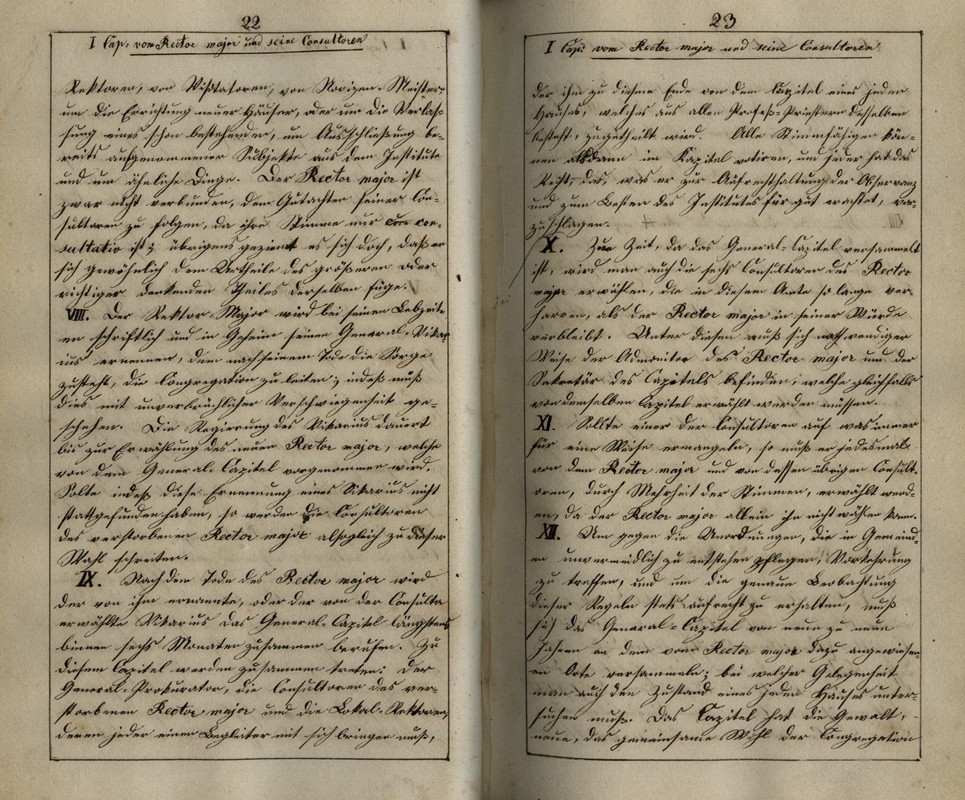 22
I Cap: vom Rector major und seine Consultoren
Rektoren, von Visitatoren, von Novizen-Meister,
um die Errichtung neuer Häuser, oder um die Verlas-
sung eines schon bestehenden, um Ausschließung be-
reits aufgenommener Subjekte aus dem Institute
und um ähnliche Dinge. Der Rector major ist
zwar nicht verbunden, dem Gutachten seiner Con-
sultoren zu folgen, da ihre Stimme nur con-
sultativ ist; übrigens geziemt es sich doch, daß er
sich gewöhnlich dem Urtheile des größeren oder
richtiger denkenden Theiles derselben füge.
VIII. Der Rektor Major wird bei seinen Lebzeit-
en schriftlich und in Geheim seinen General-Vikar-
ius ernennen, dem nach seinem Tode die Sorge
zusteht, die Congregation zu leiten; indeß muß
dies mit unverbrüchlicher Verschwiegenheit ge-
schehen. Die Regierung des Vikarius dauert
bis zur Erwählung des neuen Rector major, welche
von dem General-Capitel vorgenommen wird.
Sollte indeß diese Ernennung eines Vikarius nicht
stattgefunden haben, so werden die Consultoren
des verstorbenen Rector major alsogleich zu dieser
Wahl schreiten.
IX. Nach dem Tode des Rector major wird
der von ihm ernannte, oder der von der Consulta
erwählte Vikarius das General-Capitel längstens
binnen sechs Monaten zusammen berufen. Zu
diesem Capitel werden zusammen treten: Der
General-Prokurator, die Consultoren des ver-
storbenen Rector major und die Lokal-Rektoren,
deren jeder einen Begleiter mit sich bringen muß,
23
I Cap: vom Rector major und seine Consultoren
der ihm zu diesem Ende von dem Capitel eines jeden
Hauses, welches aus allen Profeß-Priestern desselben
besteht, zugetheilt wird. Alle Stimmfähigen kön-
nen alsdann im Kapitel votiren, und jeder hat das
Recht, das, was er zur Aufrechthaltung der Observanz
und zum Besten des Institutes für gut erachtet, vor-
zuschlagen.
X. Zur Zeit, da das General-Capitel versammelt
ist, wird man auch die sechs Consultoren des Rector
major erwählen, die in diesem Amte so lange ver-
harren, als der Rector major in seiner Würde
verbleibt. Unter diesen muß sich nothwendiger
Weise der Admonitor des Rector major und der
Sekretär des Capitels befinden, welche gleichfalls
von demselben Capitel erwählt werden müssen.
XI. Sollte einer der Consultoren auf was immer
für eine Weise ermangeln, so muß er jedesmal
von dem Rector major und von dessen übrigen Consult-
oren, durch Mehrheit der Stimmen, erwählt werd-
en, da der Rector major allein ihn nicht wählen kann.
XII. Um gegen die Unordnungen, die in Gemeind-
en unvermeidlich zu entstehen pflegen, Vorkehrung
zu treffen, und um die genaue Beobachtung
dieser Regeln stets aufrecht zu erhalten, muß
sich das General-Capitel von neun zu neun
Jahren an dem vom Rector major dazu angewiesen-
en Orte versammeln; bei welcher Gelegenheit
man auch den Zustand eines jeden Hauses unter-
suchen muß. Das Capitel hat die Gewalt,
neue, das gemeinsame Wohl der Congregation